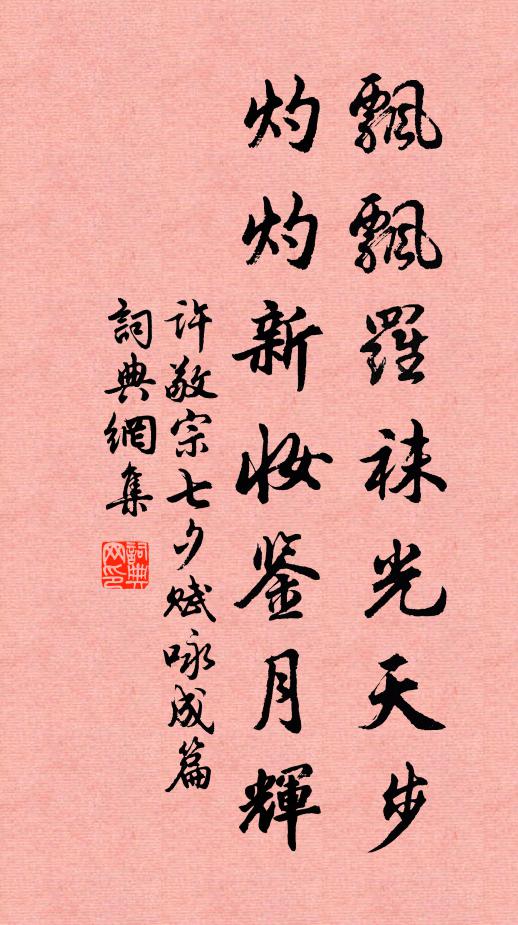 飄飄羅袜光天步
灼灼新妝鉴月輝
許敬宗七夕賦咏成篇
詞典網集
詞典网印